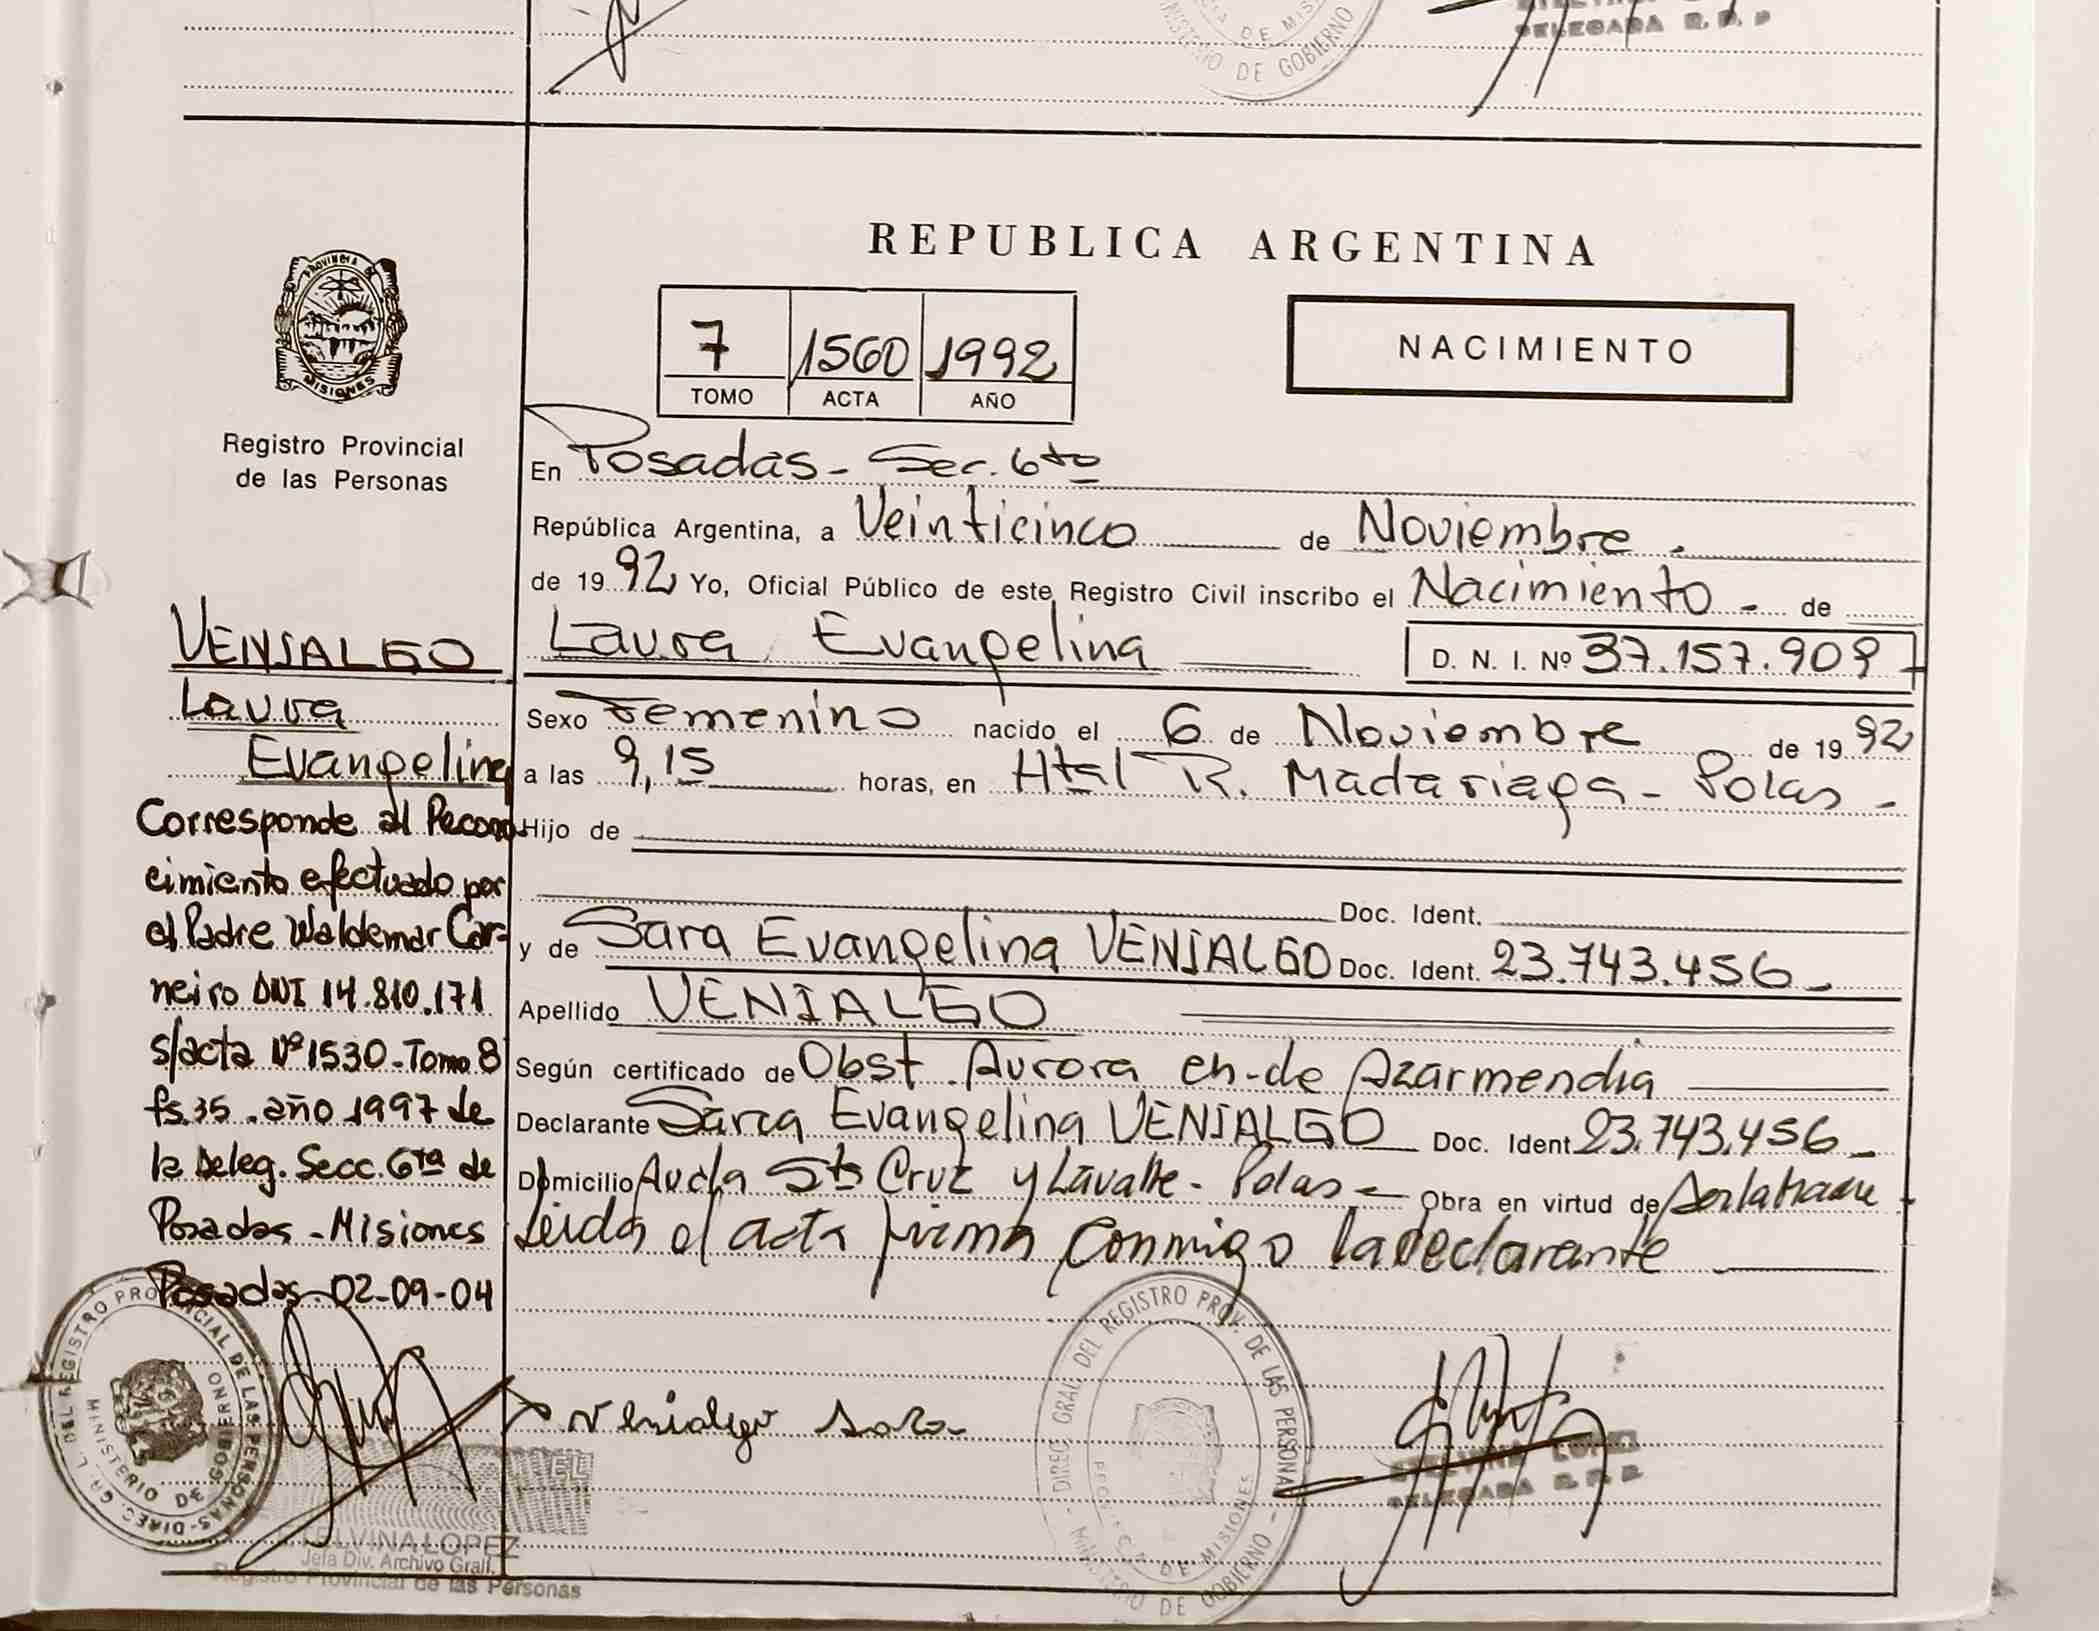 DE MISI
MINISTERIO DE GOBIERNO
DELEGADA R. P. P
REPUBLICA ARGENTINA
PROVINCIA DE
MISIONES
Registro Provincial
de las Personas
7 1560 1992
TOMO ACTA AÑO
NACIMIENTO
En Posadas - Sec. 6to
República Argentina, a Veinticinco de Noviembre.
de 1992 Yo, Oficial Público de este Registro Civil inscribo el Nacimiento - de
Laura Evangelina D. N. I. Nº 37.157.909
Sexo Femenino nacido el 6 de Noviembre de 1992
a las 9,15 horas, en Htal R. Madariaga - Pdas -
Hijo de
Doc. Ident.
y de Sara Evangelina VENIALGO Doc. Ident. 23.743.456 -
Apellido VENIALGO
Según certificado de Obst. Aurora ch. de Azarmendia
Declarante Sara Evangelina VENIALGO Doc. Ident 23.743.456 -
Domicilio Avda Sta Cruz y Lavalle - Pdas - Obra en virtud de
Leida el acta firma conmigo la declarante
VENIALGO
Laura
Evangelina
Corresponde al Recono
cimiento efectuado por
el Padre Waldemar Car-
neiro DNI 14.810.171
s/acta Nº 1530 - Tomo 8
fs. 35. año 1997 de
la Deleg. Secc. 6ta de
Posadas - Misiones
Posadas - 02-09-04
DIREC. GRAL. DEL REGISTRO PROVINCIAL DE LAS PERSONAS
MINISTERIO DE GOBIERNO
ETELVINA LOPEZ
Jefa Div. Archivo Grall.
Registro Provincial de las Personas
Venialgo Sara
DIREC. GRAL. DEL REGISTRO PROV. DE LAS PERSONAS
PROVINCIA DE MISIONES
MINISTERIO DE GOBIERNO
ETELVINA LOPEZ
DELEGADA R. P. P.